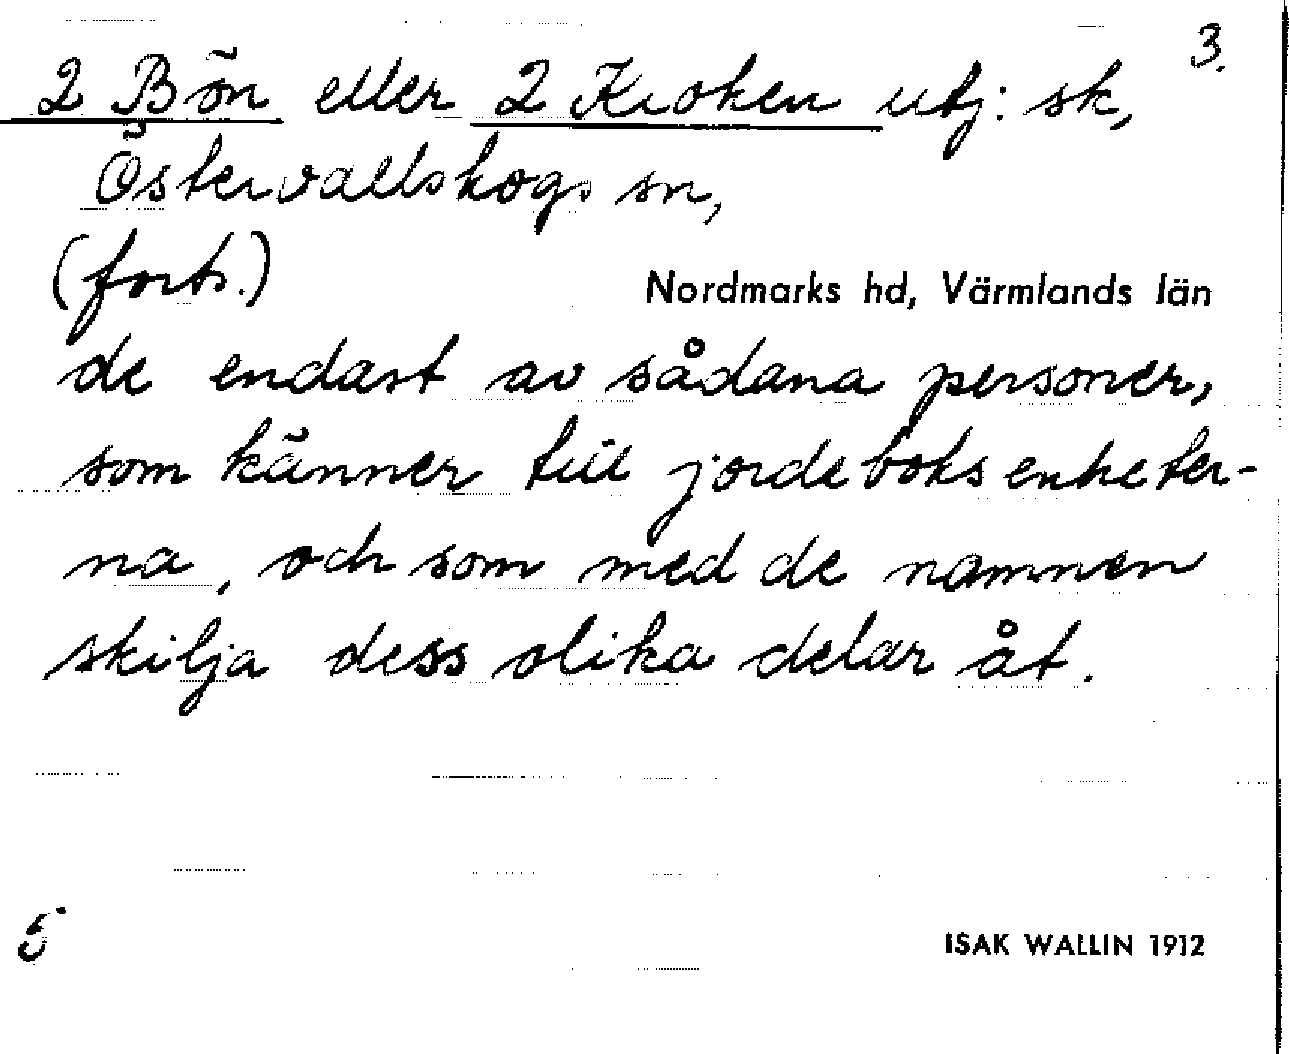 3.
2 Bön eller 2 Kroken utj: sk,
Östervallskogs sn,
(forts.)
Nordmarks hd, Värmlands län
de endast av sådana personer,
som känner till jordeboksenheter-
na, och som med de namnen
skilja dess olika delar åt.
5
ISAK WALLIN 1912